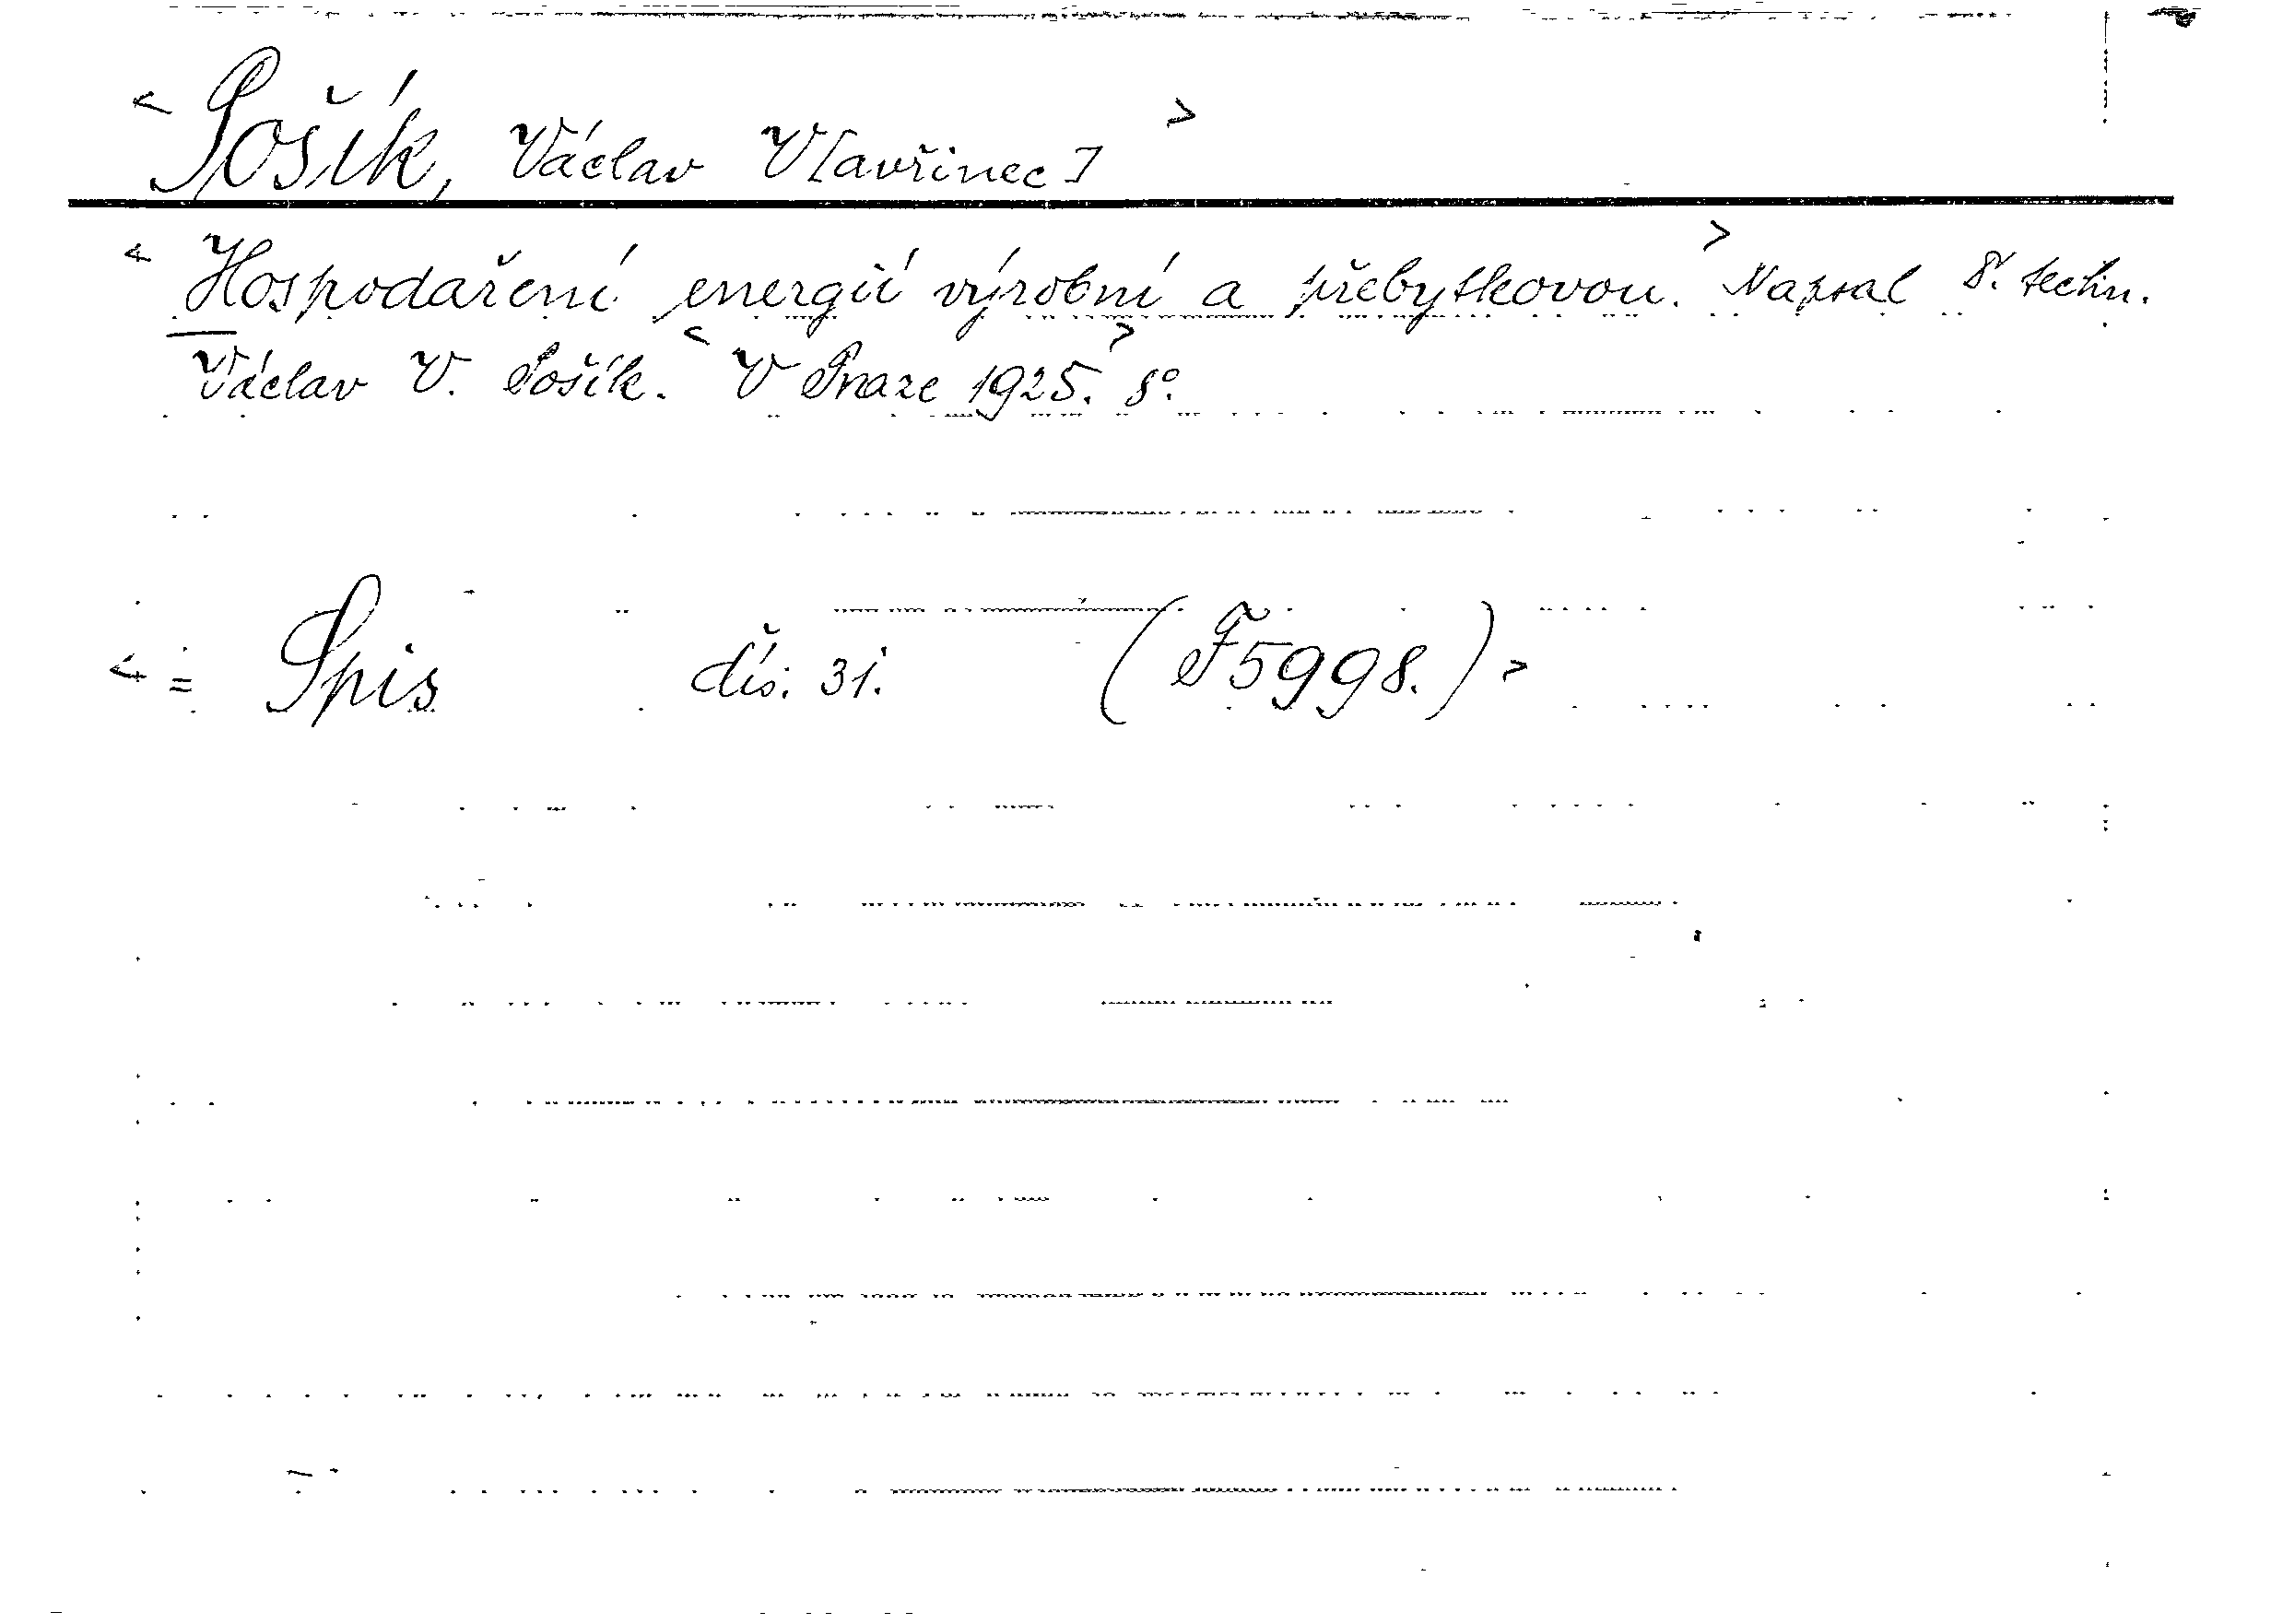 < Sošík, Václav V[avřinec] >
< Hospodaření energií výrobní a přebytkovou. > Napsal Dr. techn.
Václav V. Sošík. < V Praze 1925. > 8°.
< = Spis čís. 31. (F 5998.) >